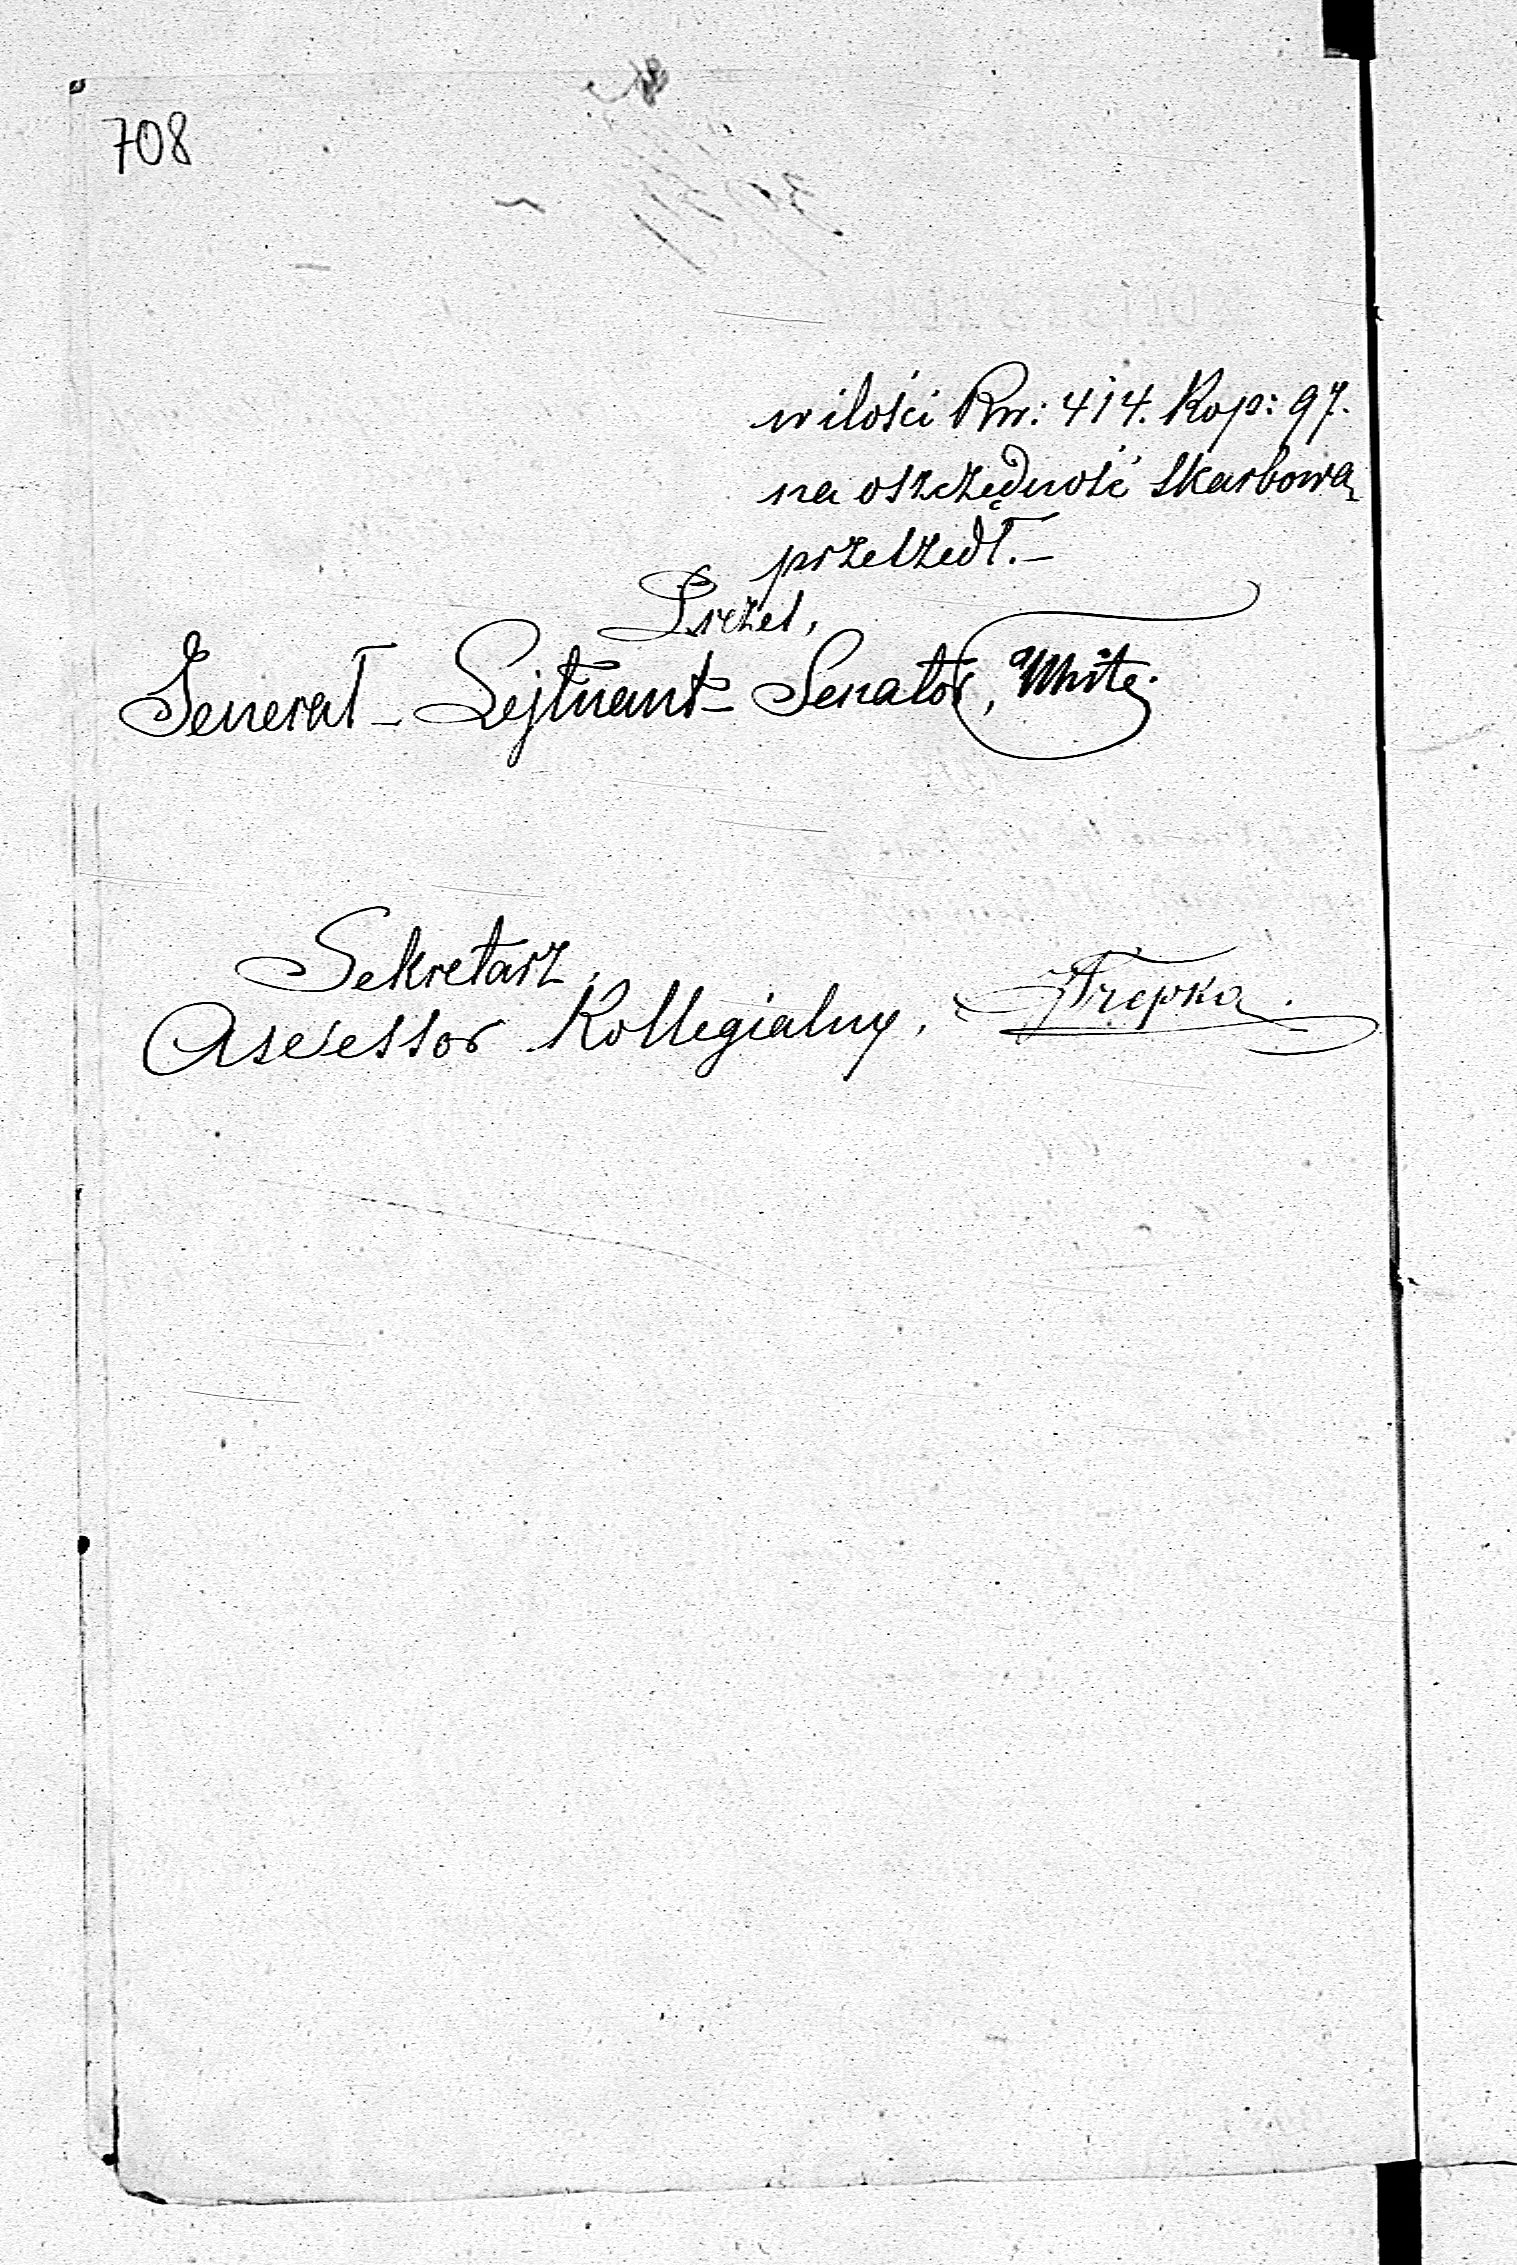 708
w ilości Rsr: 414. Kop: 97.
na oszczędność Skarbową
przeszedł.–
Prezes,
Jenerał – Lejtnant – Senator, White.
Sekretarz,
Assessor Kollegialny, Trepka.